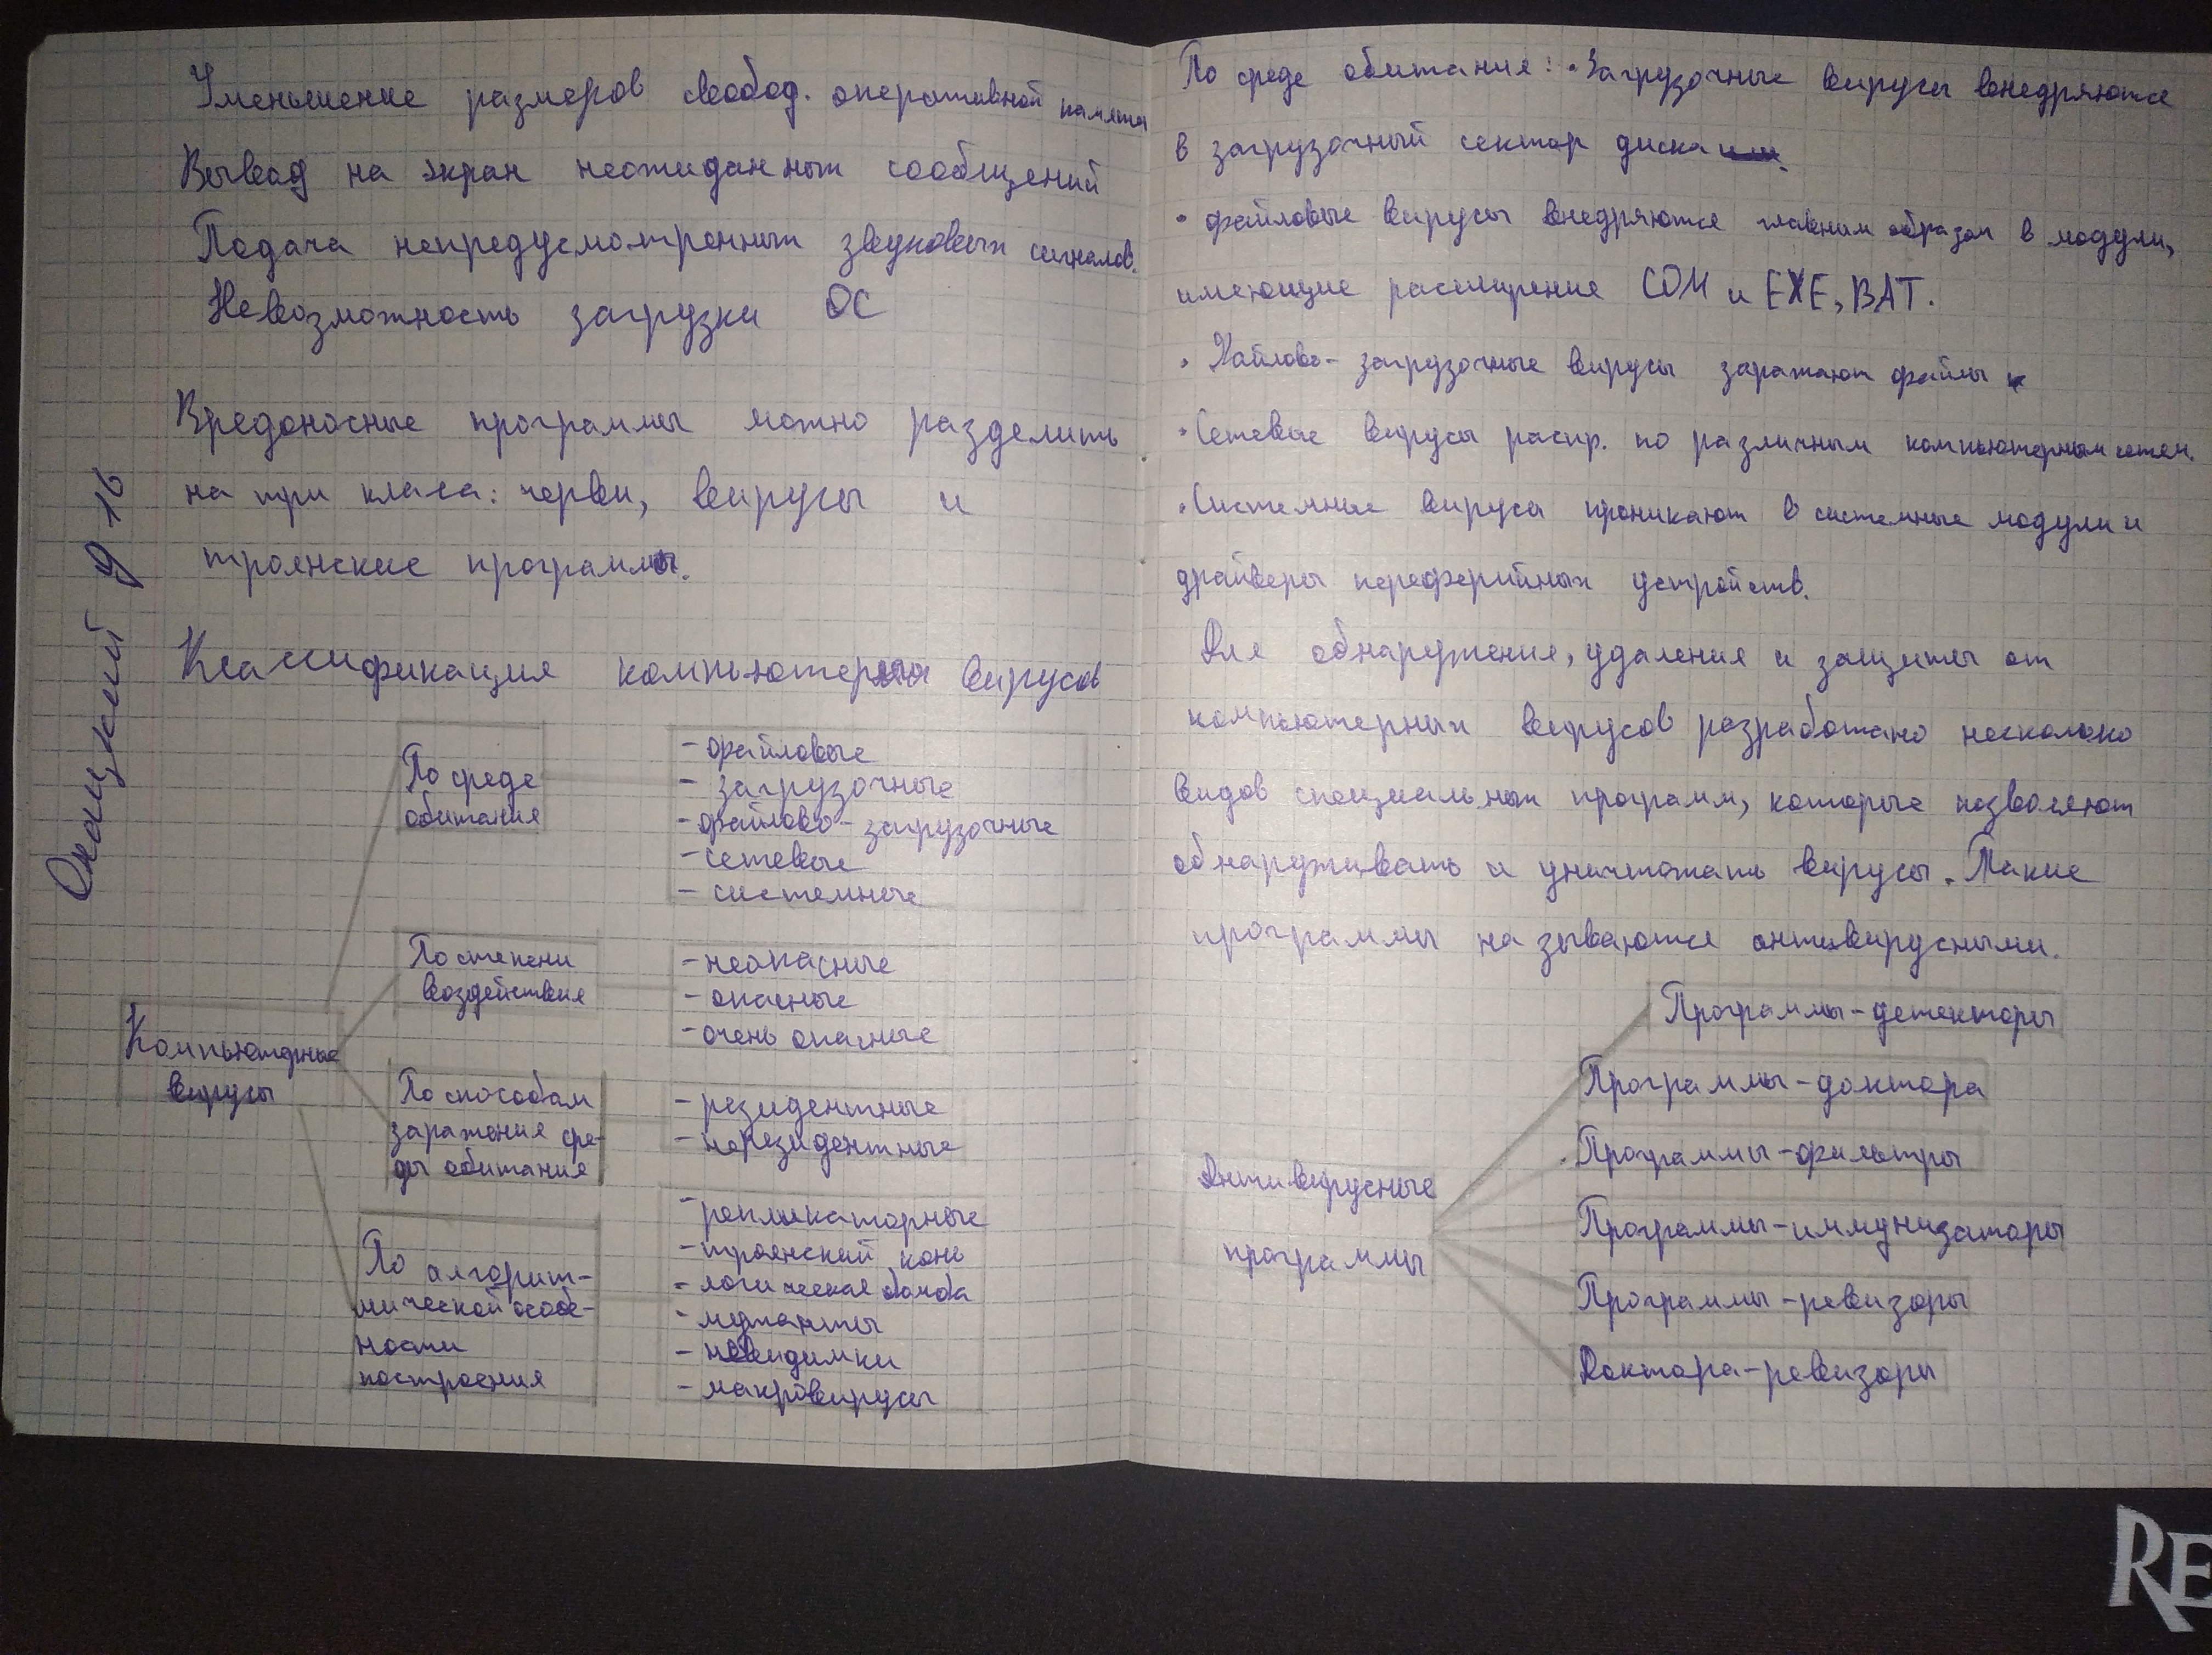 Уменьшение размеров свобод. оперативной памяти
Вывод на экран неожиданных сообщений
Подача непредусмотренных звуковых сигналов.
Невозможность загрузки ОС
Вредоносные программы можно разделить
на три класа: черви, вирусы и
троянские программы.
Классификация компьютерных вирусов
По среде
обитания
- файловые
- загрузочные
- файлово-загрузочные
- сетевые
- системные
По степени
воздействия
- неопасные
- опасные
- очень опасные
Компьютерные
вирусы
По способам
заражения сре-
ды обитания
- резидентные
- нерезидентные
По алгорит-
мической особе-
ности
построения
- репликаторные
- троянский конь
- логическая бомба
- мутанты
- невидимки
- макровирусы
9-16
По среде обитания: • Загрузочные вирусы внедряются
в загрузочный сектор диска
• файловые вирусы внедряются главним образом в модули,
имеющие расширение COM и EXE, BAT.
• Файлово-загрузочные вирусы заражают файлы
• Сетевые вирусы распр. по различным компьютерным сетям.
• Системные вируса проникают в системные модули и
драйверы переферийных устройств.
Для обнаружения, удаления и защиты от
компьютерных вирусов разработано несколько
видов специальных программ, которые позволяют
обнаруживать и уничтожать вирусы. Такие
программы называются антивирусными.
Антивирусные
программы
Программы-детекторы
Программы-доктора
Программы-фильтры
Программы-иммунизаторы
Программы-ревизоры
Доктора-ревизоры
RE